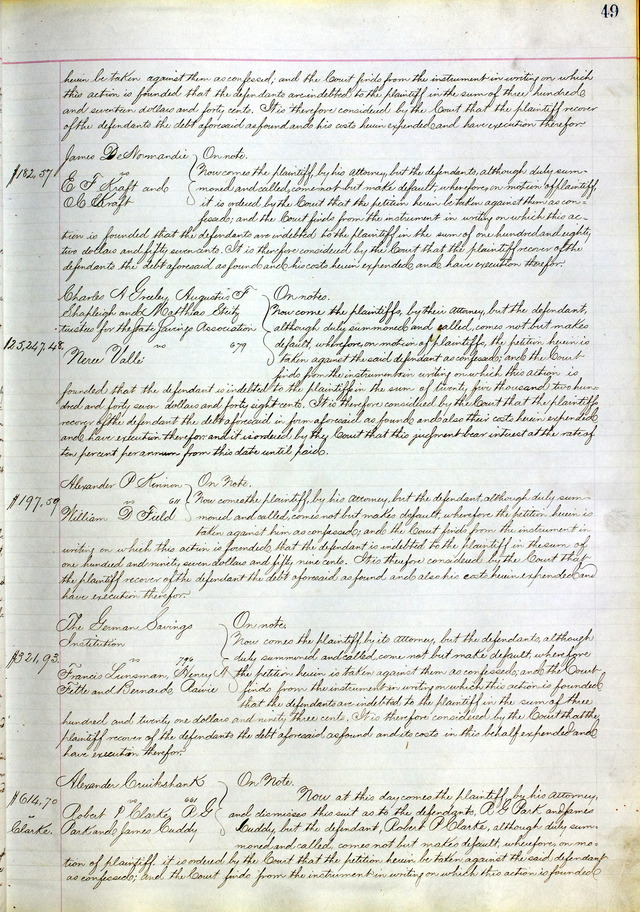 49
herein be taken against them as confessed; and the Court finds from the instrument in writing on which
this action is founded that the defendants are indebted to the plaintiff in the sum of three hundred
and seventeen dollars and forty cents. It is therefore considered by the Court that the plaintiff recover
of the defendants the debt aforesaid as found and his costs herein expended and have execution therefor.
James DeNormandie
vs
E F Kraft and
O C Kraft
$182,57
On note.
Now comes the plaintiff, by his Attorney, but the defendants, although duly sum-
moned and called, come not but make default; wherefore, on motion of plaintiff,
it is ordered by the Court that the petition herein be taken against them as con-
fessed; and the Court finds from the instrument in writing on which this ac-
tion is founded that the defendants are indebted to the plaintiff in the sum of one hundred and eighty
two dollars and fifty seven cents. It is therefore considered by the Court that the plaintiff recover of the
defendants the debt aforesaid as found and his costs herein expended and have execution therefor.
Charles A Greeley, Augustus F
Shapleigh and Matthias
trustees for the State Savings Association
vs 679
Neree Valle
$25,247,48
On notes.
Now come the plaintiffs, by their Attorney, but the defendant,
although duly summoned and called, comes not but makes
default, wherefore, on motion of plaintiffs, the petition herein is
taken against the said defendant as confessed; and the Court
finds from the instrument in writing on which this action is
founded that the defendant is indebted to the plaintiff in the sum of twenty five thousand two hun-
dred and forty seven dollars and forty eight cents. It is therefore considered by the Court that the plaintiffs
recover of the defendant the debt aforesaid in form aforesaid as found and also their costs herein expended
and have execution therefor and it is ordered by the Court that this judgment bear interest at the rate of
ten percent per annum from this date until paid.
Alexander P
vs 611
William D Field
$197,59
On Note.
Now comes the plaintiff, by his Attorney, but the defendant, although duly sum-
moned and called, comes not but makes default, wherefore the petition herein is
taken against him as confessed; and the Court finds from the instrument in
writing on which this action is founded that the defendant is indebted to the plaintiff in the sum of
one hundred and ninety seven dollars and fifty nine cents. It is therefore considered by the Court that
the plaintiff recover of the defendant the debt aforesaid as found and also his costs herein expended and
have execution therefor.
The German Savings
Institution
vs 796
Francis Linsman, Henry A
and Bernard
$321,93
On note.
Now comes the plaintiff by its attorney, but the defendants, although
duly summoned and called, come not but make default, wherefore
the petition herein is taken against them as confessed; and the Court
finds from the instrument in writing on which this action is founded
that the defendants are indebted to the plaintiff in the sum of three
hundred and twenty one dollars and ninety three cents. It is therefore considered by the Court that the
plaintiff recover of the defendants the debt aforesaid as found and its costs in this behalf expended and
have execution therefor.
Alexander Cruikshank
vs 661
Robert P Clarke, R G
Park and James Cuddy
$614,70
vs
Clarke.
On Note.
Now at this day comes the plaintiff, by his Attorney,
and dismisses this suit as to the defendants, R G Park and James
Cuddy, but the defendant, Robert P Clarke, although duly sum-
moned and called, comes not but makes default, wherefore, on mo-
tion of plaintiff it is ordered by the Court that the petition herein be taken against the said defendant
as confessed; and the Court finds from the instrument in writing on which this action is founded